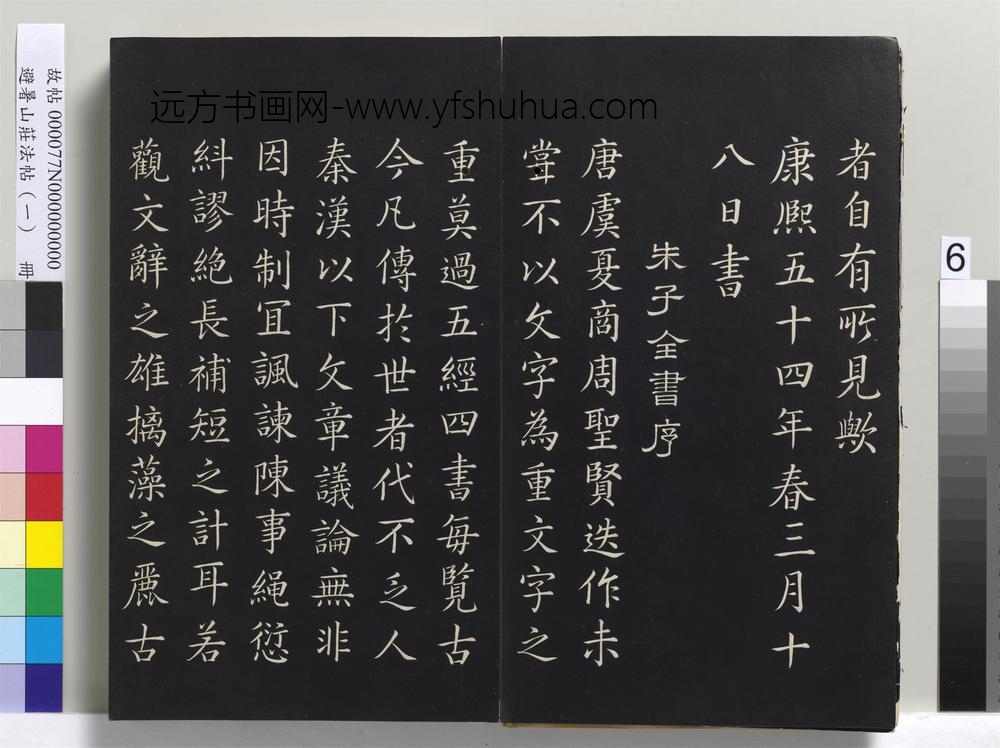 者自有所見歟
康熙五十四年春三月十
八日書
朱子全書序
唐虞夏商周聖賢迭作未
嘗不以文字為重文字之
重莫過五經四書每覽古
今凡傳於世者代不乏人
秦漢以下文章議論無非
因時制宜諷諫陳事繩愆
糾謬絕長補短之計耳若
觀文辭之雄摛藻之麗古
远方书画网-www.yfshuhua.com
故帖 000077N000000000
避暑山莊法帖(一) 冊
6